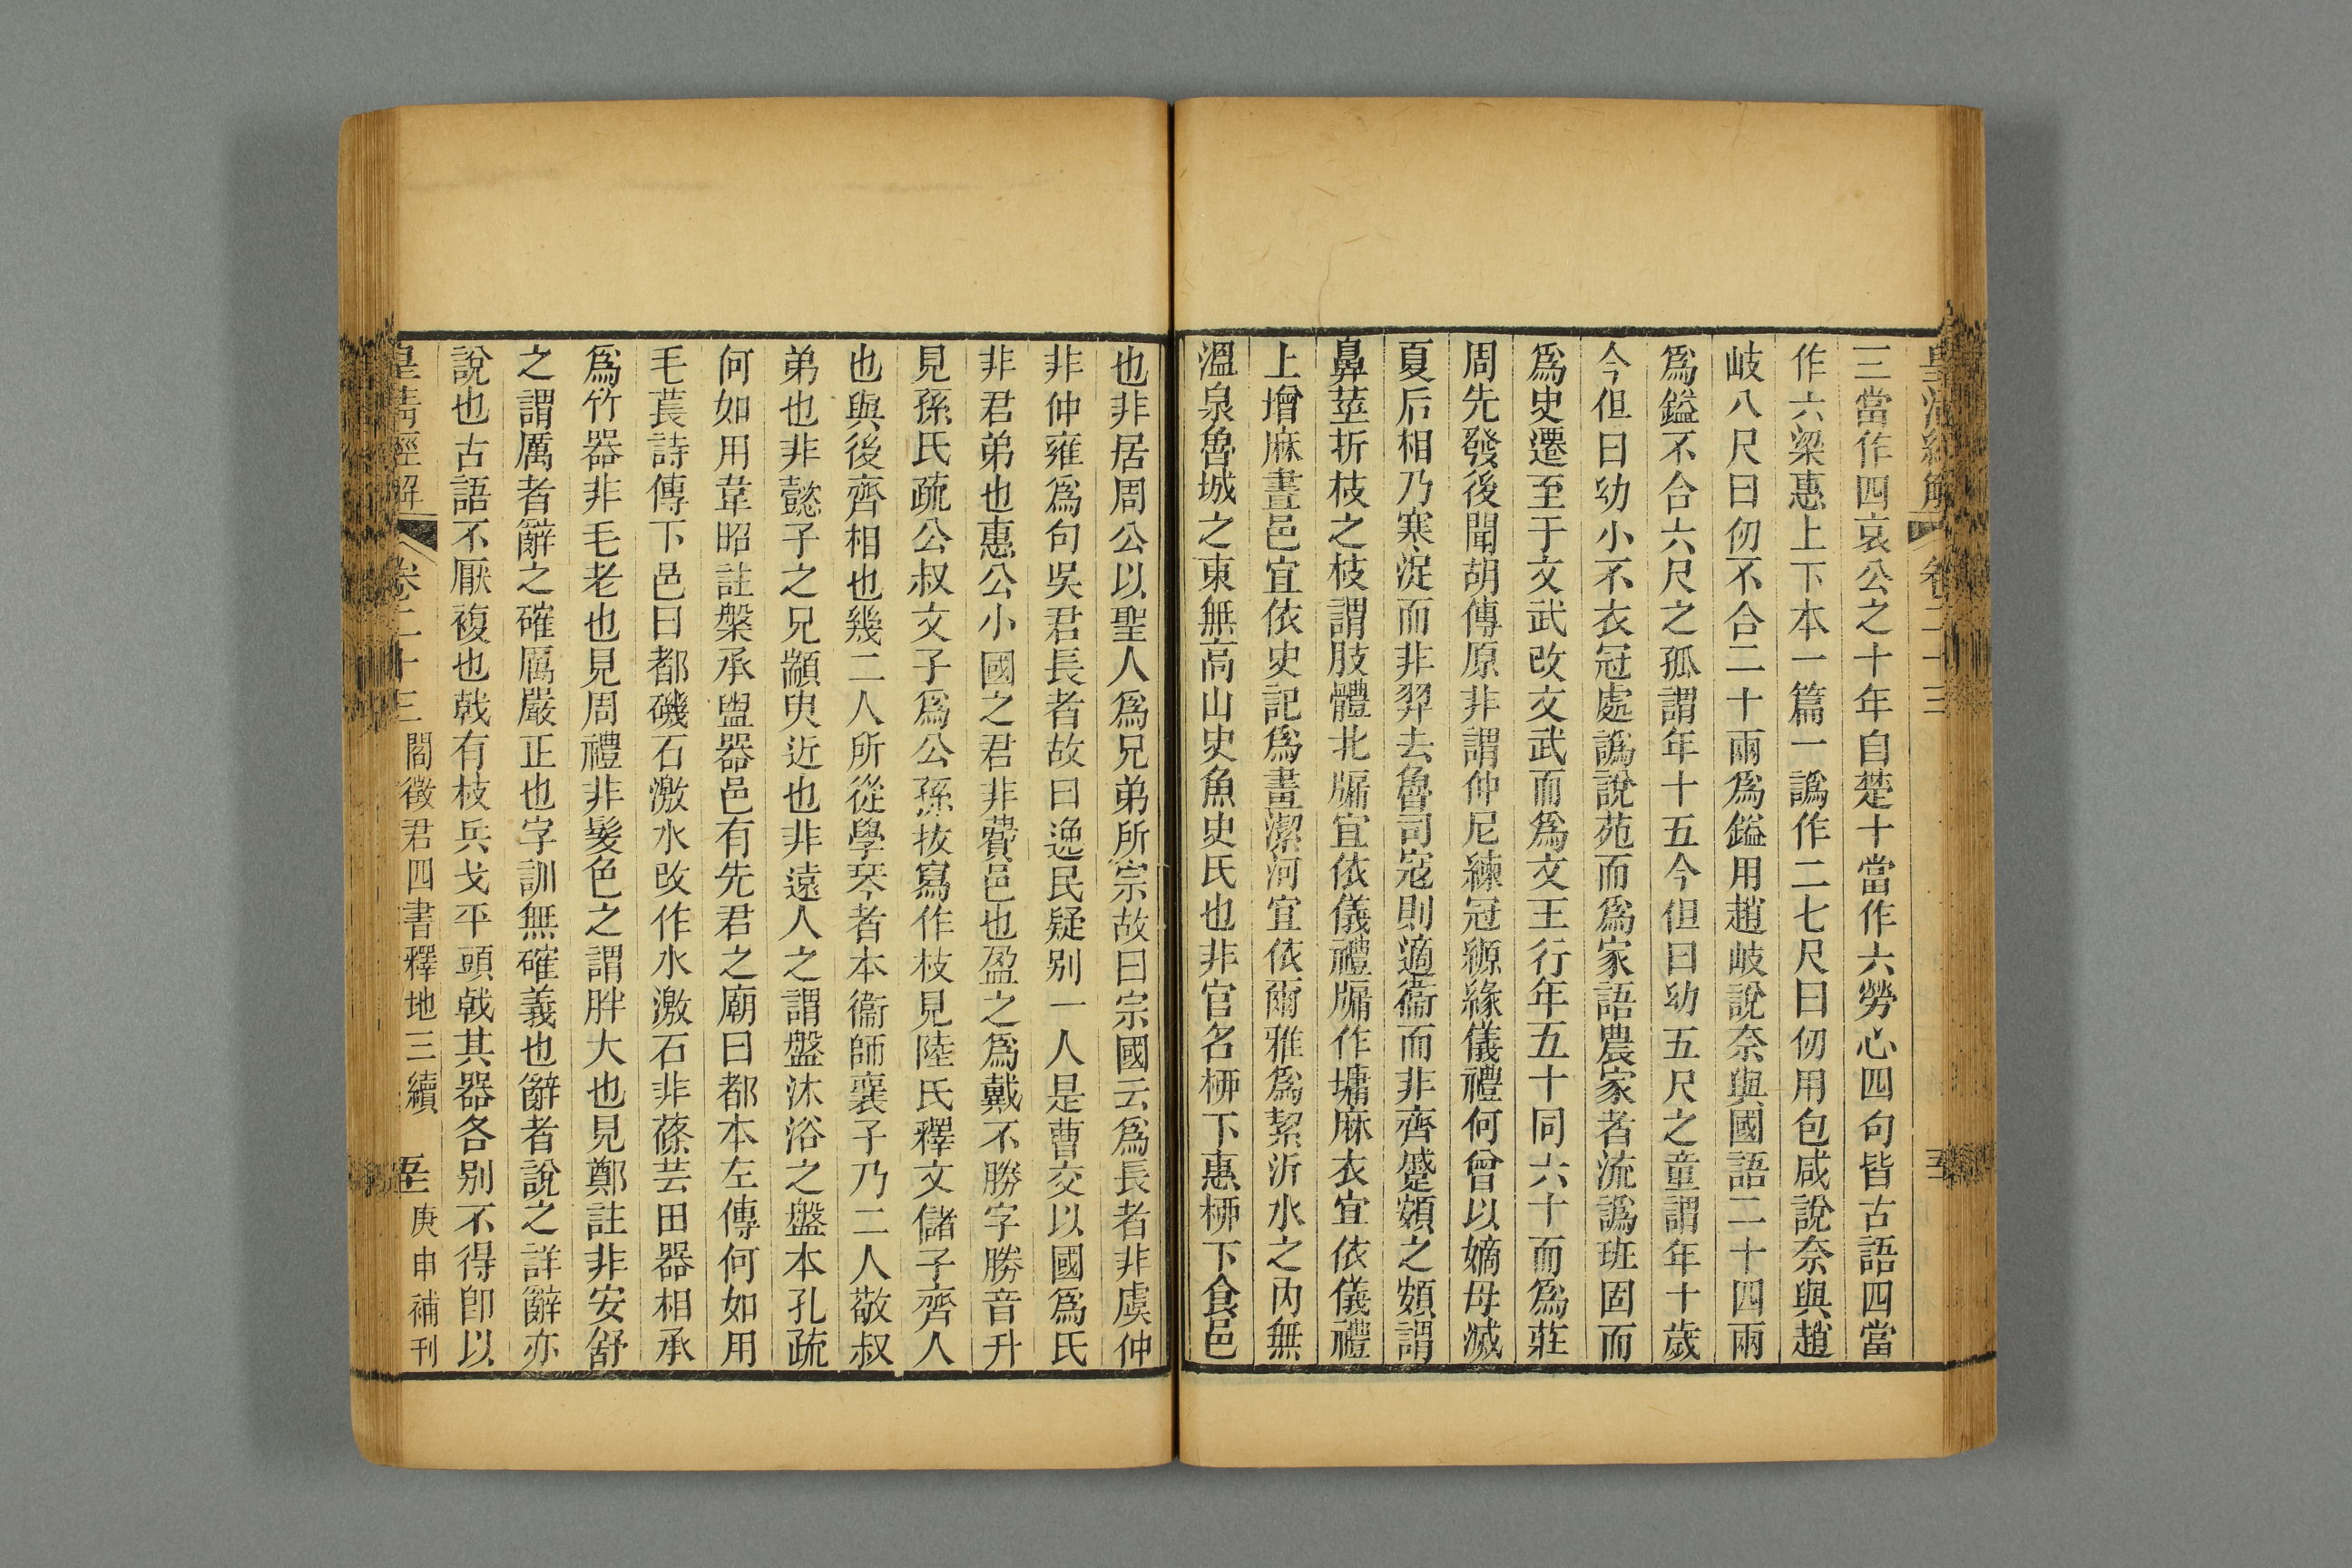 皇清經解 卷二十三 五
三當作四哀公之十年自楚十當作六勞心四句皆古語四當
作六梁惠上下本一篇一譌作二七尺曰仞用包咸說奈與趙
岐八尺曰仞不合二十兩爲鎰用趙岐說奈與國語二十四兩
爲鎰不合六尺之孤謂年十五今但曰幼五尺之童謂年十歲
今但曰幼小不衣冠處譌說苑而爲家語農家者流譌班固而
爲史遷至于文武改文武而爲文王行年五十同六十而爲莊
周先發後聞胡傳原非謂仲尼練冠縓緣儀禮何曾以嫡母滅
夏后相乃寒浞而非羿去魯司寇則適衞而非齊蹙頞之頞謂
鼻莖折枝之枝謂肢體北牖宜依儀禮牖作墉麻衣宜依儀禮
上增麻晝邑宜依史記爲畫潔河宜依爾雅爲絜沂水之內無
溫泉魯城之東無高山史魚史氏也非官名柳下惠柳下食邑
也非居周公以聖人爲兄弟所宗故曰宗國云爲長者非虞仲
非仲雍爲句吳君長者故曰逸民疑别一人是曹交以國爲氏
非君弟也惠公小國之君非費邑也盈之爲戴不勝字勝音升
見孫氏疏公叔文子爲公孫抜寫作枝見陸氏釋文儲子齊人
也與後齊相也幾二人所從學琴者本衞師襄子乃二人敬叔
弟也非懿子之兄顓臾近也非遠人之謂盤沐浴之盤本孔疏
何如用韋昭註槃承盥器邑有先君之廟曰都本左傳何如用
毛萇詩傳下邑曰都磯石激水改作水激石非蓧芸田器相承
爲竹器非毛老也見周禮非髮色之謂胖大也見鄭註非安舒
之謂厲者辭之確厲嚴正也字訓無確義也辭者說之詳辭亦
說也古語不厭複也戟有枝兵戈平頭戟其器各别不得卽以
皇清經解 卷二十三 閻徵君四書釋地三續 五 庚申補刊